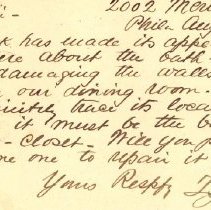 2002 Mer
Phila Aug
k has made its appe
ere about the bath
damaging the walls
our dining room.
icitely trace its loca
it must be the b
- closet - Will you p
me one to repair it
Yours Respfy